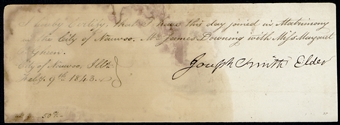 I hereby Certify that I have this day joined in Matrimony
in the City of Nauvoo. Mr James Downing with Miss Margaret
City of Nauvoo, Ills
Joseph Smith Elder
9th 1843